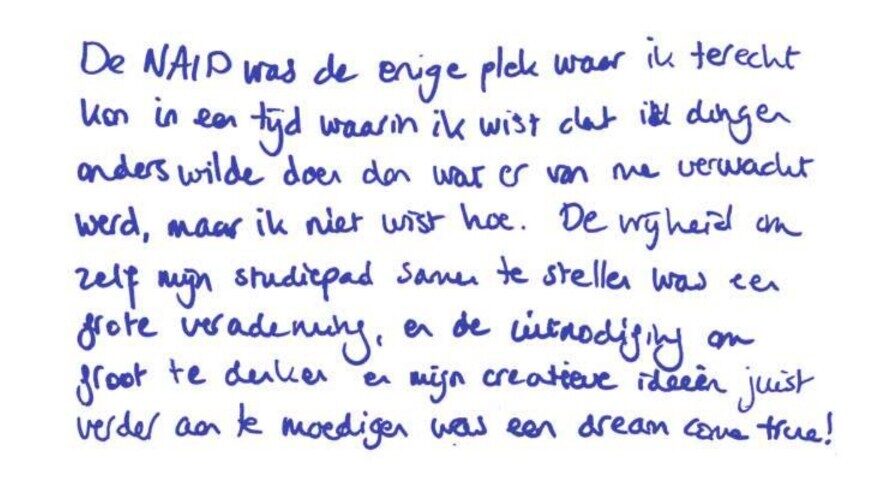 De NAID was de enige plek waar ik terecht
kon in een tijd waarin ik wist dat ik dingen
anders wilde doen dan wat er van me verwacht
werd, maar ik niet wist hoe. De vrijheid om
zelf mijn studiepad samen te stellen was een
grote verademing, en de uitnodiging om
groot te denken en mijn creatieve ideeën juist
verder aan te moedigen was een dream come true!